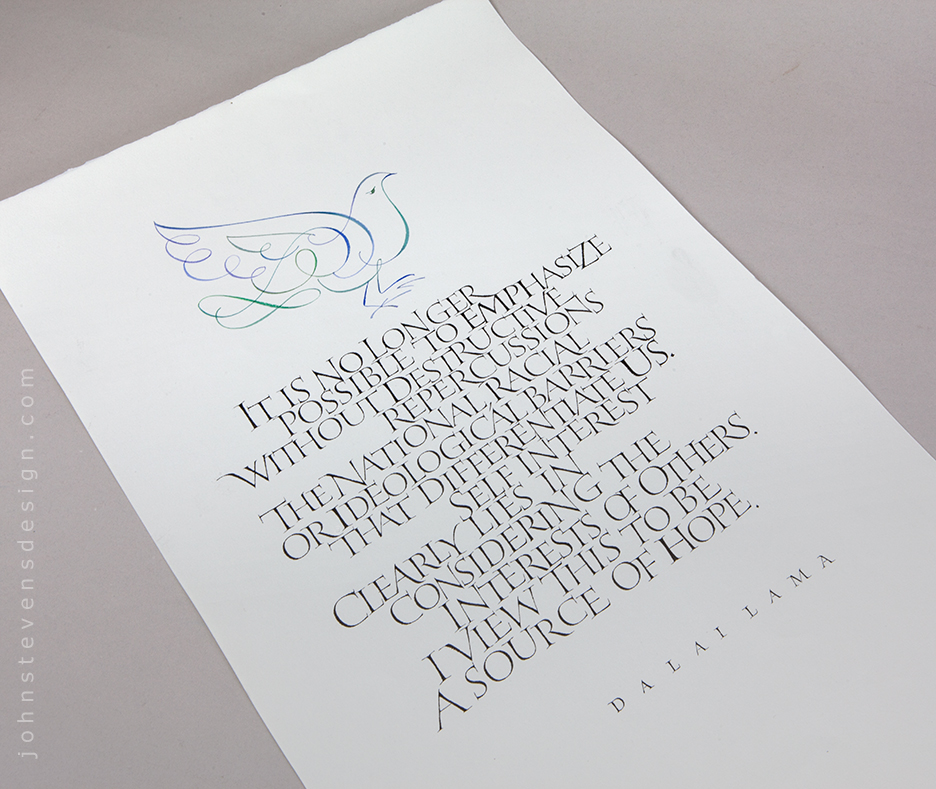 IT IS NO LONGER
POSSIBLE TO EMPHASIZE
WITHOUT DESTRUCTIVE
REPERCUSSIONS
THE NATIONAL RACIAL
OR IDEOLOGICAL BARRIERS
THAT DIFFERENTIATE US.
SELF INTEREST
CLEARLY LIES IN
CONSIDERING THE
INTERESTS OF OTHERS.
I VIEW THIS TO BE
A SOURCE OF HOPE.
DALAI LAMA
johnstevensdesign.com